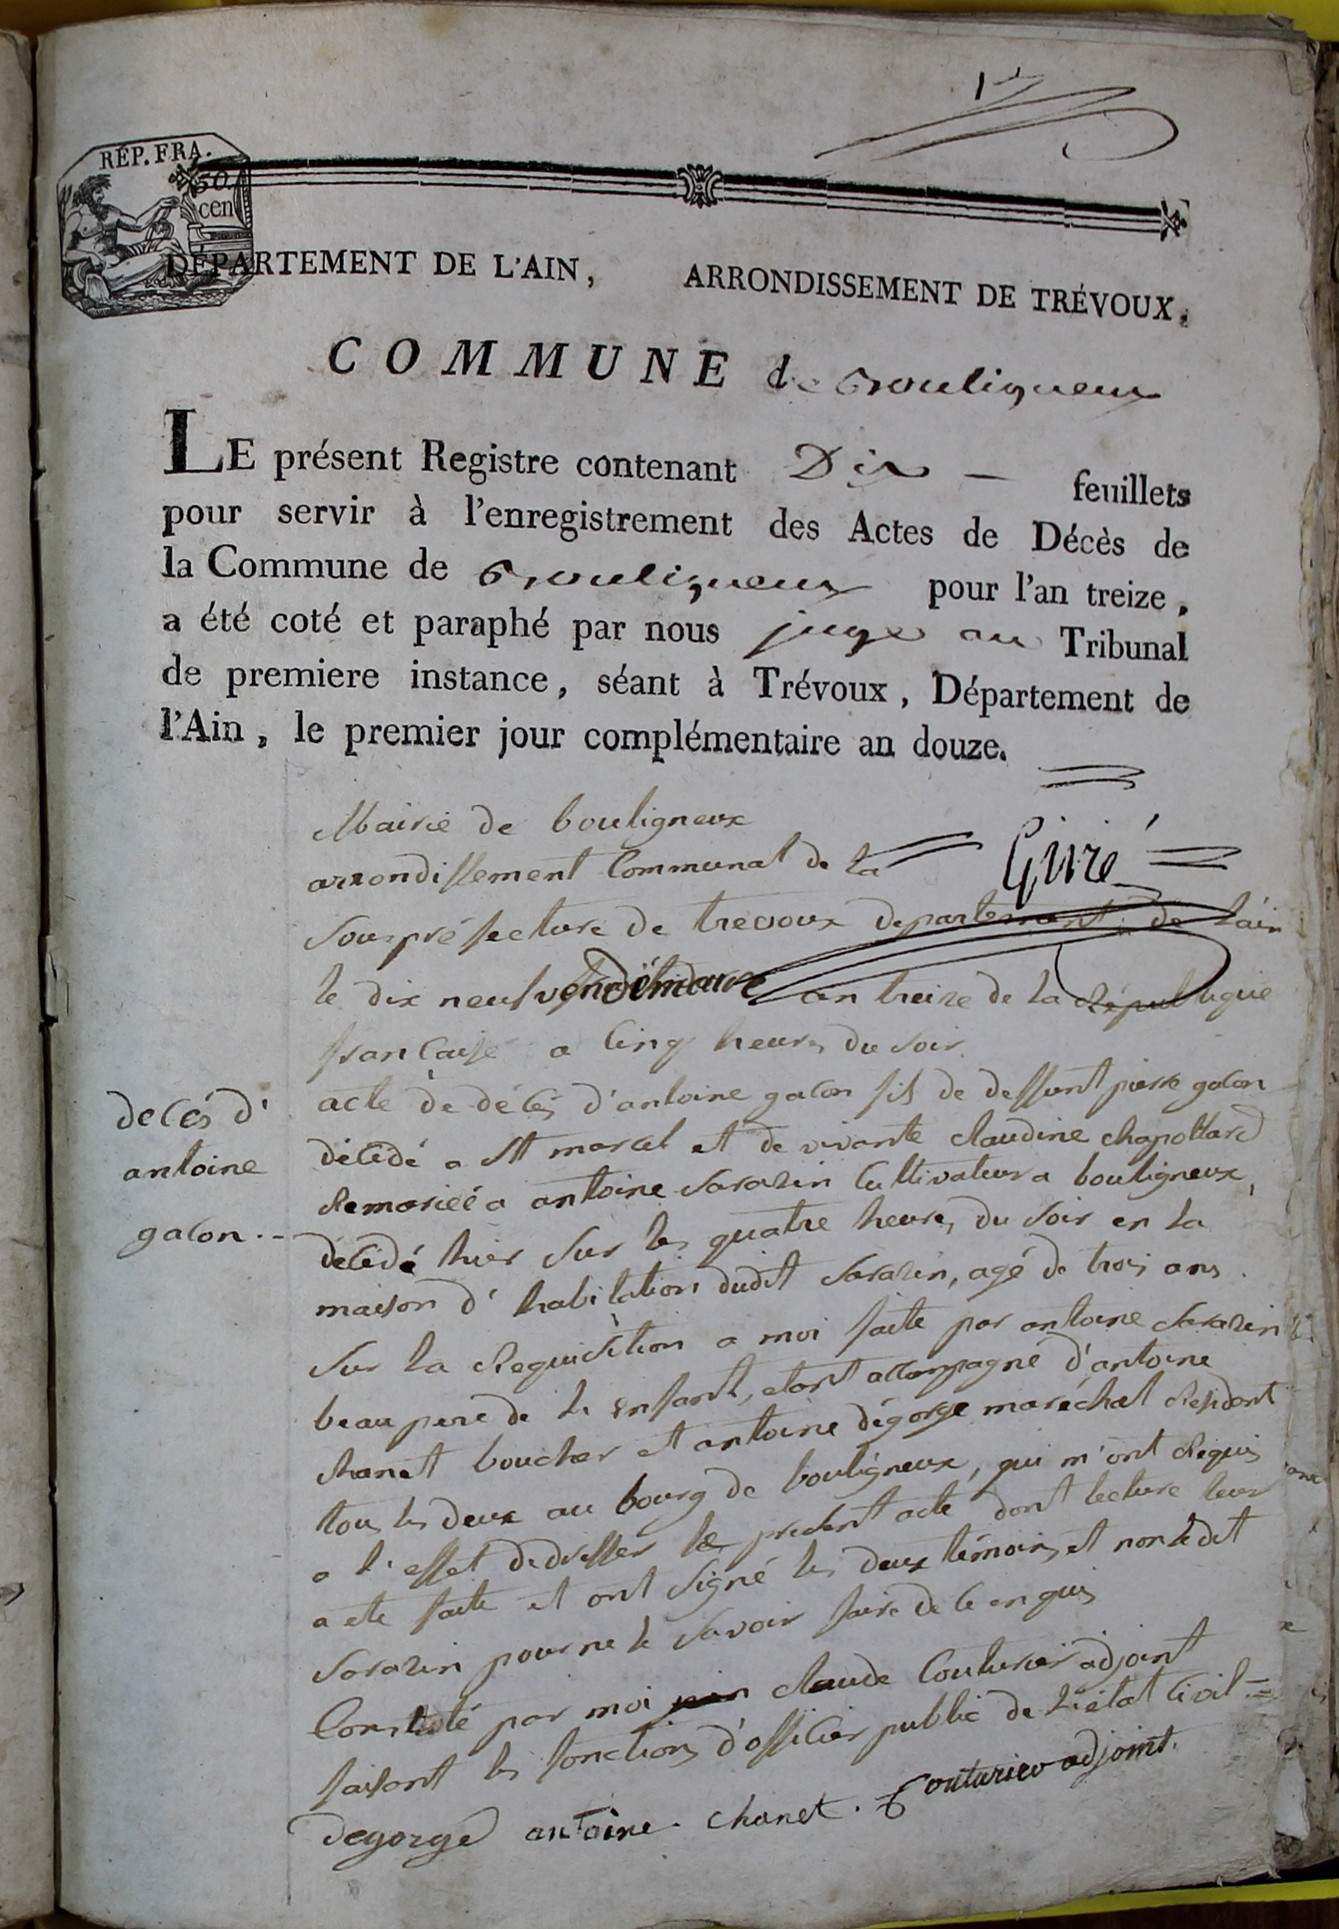 1r
RÉP. FRA.
50
cen
DÉPARTEMENT DE L'AIN, ARRONDISSEMENT DE TRÉVOUX,
COMMUNE de Bouligneux
LE présent Registre contenant Dix — feuillets
pour servir à l'enregistrement des Actes de Décès de
la Commune de Bouligneux pour l'an treize,
a été coté et paraphé par nous juge au Tribunal
de premiere instance, séant à Trévoux, Département de
l'Ain, le premier jour complémentaire an douze.
Mairie de bouligneux
arrondissement Communal de la
Givré
Souspréfecture de trevoux departement de l'ain
le dix neuf vendémiaire an treize de la République
francaise a Cinq heures du soir
acte de décés d'antoine galon fils de deffunt pierre galon
décédé a St marcel et de vivante claudine chapottard
Remariée a antoine Sarazin Cultivateur a bouligneux,
décédé hier sur les quatre heures du soir en la
maison d'habitation dudit Sarazin, agé de trois ans.
Sur la Requisition a moi faite par antoine Sarazin
beaupere de l'enfant, etant accompagné d'antoine
chanet boucher et antoine dégorge maréchal Residant
tous les deux au bourg de bouligneux, qui m'ont Requis
a l'effet d'edresser le present acte dont lecture leur
a eté faite et ont signé les deux témoins et non ledit
Sarazin pour ne le savoir faire de ce enquis
Constaté par moi claude Couturier adjoint
faisant les fonctions d'officier public de l'état Civil =
degorge antoine. chanet. Couturier adjoint.
decés d'
antoine
galon.-